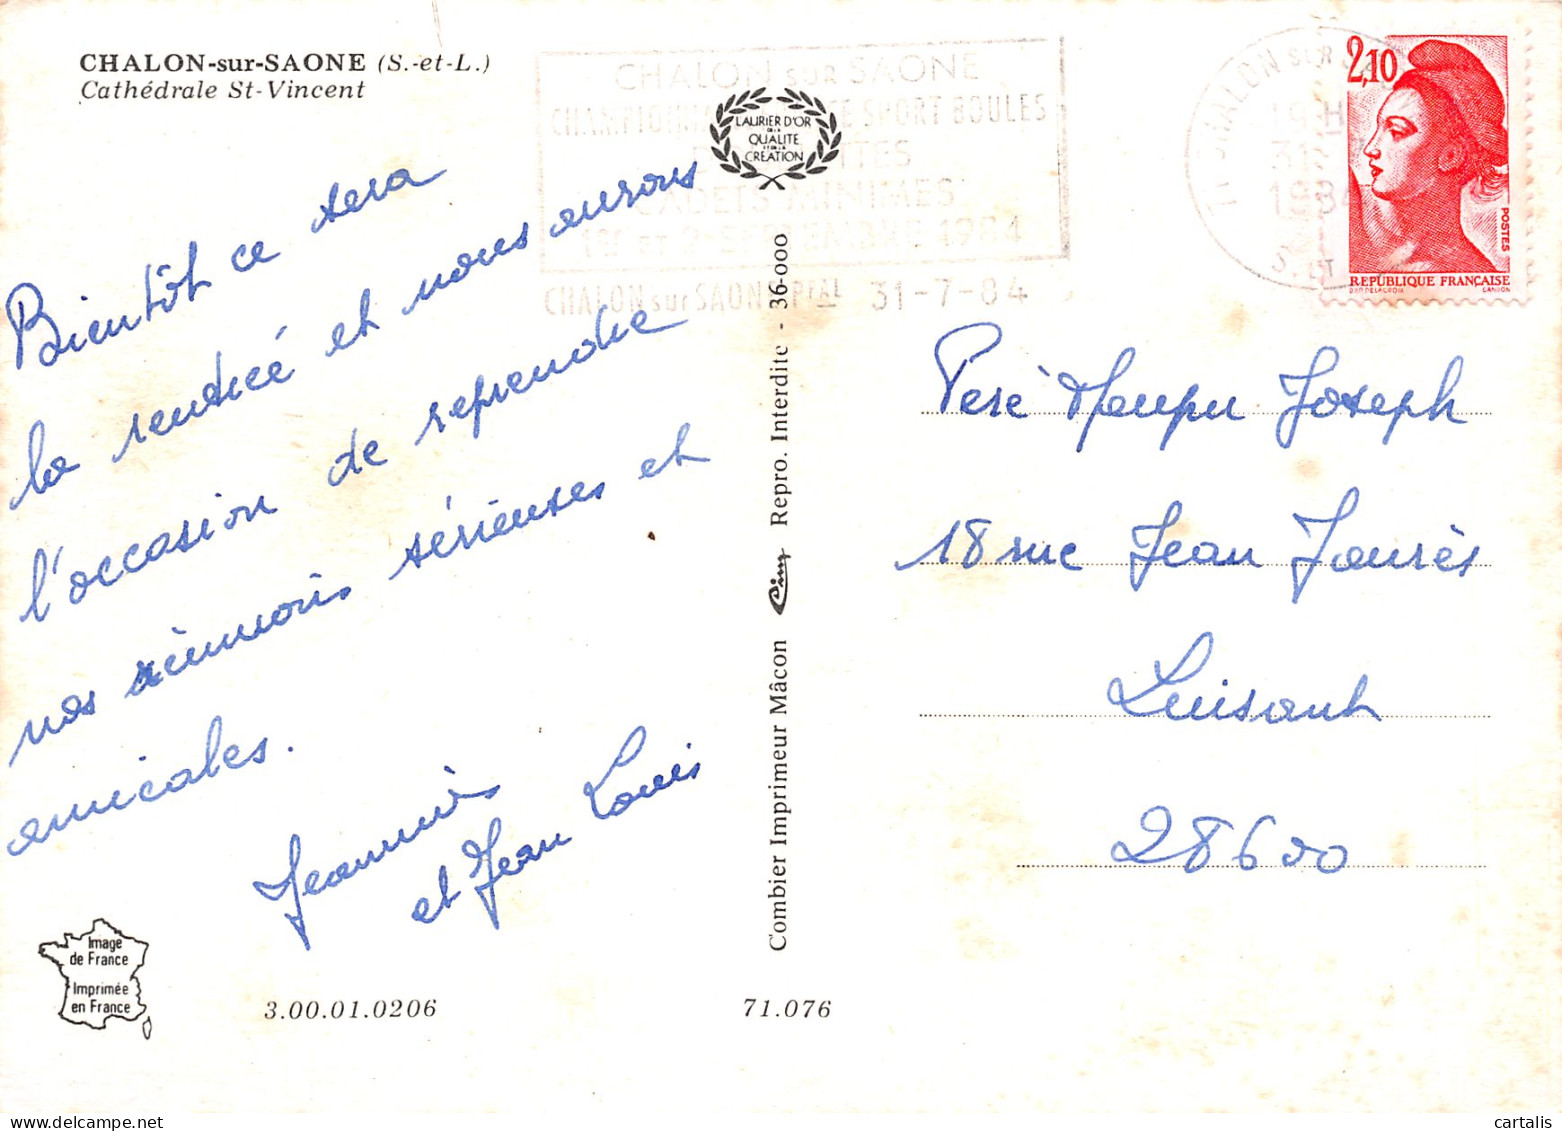 CHALON-sur-SAONE (S.-et-L.)
Cathédrale St-Vincent
Bientôt ce sera
la rentrée et nous aurons
l'occasion de reprendre
nos réunions sérieuses et
amicales.
Jeannine
et Jean Louis
Image
de France
Imprimée
en France
3.00.01.0206
71.076
Combier Imprimeur Mâcon
Cim
Repro. Interdite - 36-000
LAURIER D'OR
DE LA
QUALITE
ET DE LA
CREATION
CHALON sur SAONE
SPORT BOULES
CADETS MINIMES
1984
CHALON sur SAONE PPAL 31-7-84
71 CHALON sur
19 H
31
1984
S. ET
2,10
POSTES
RÉPUBLIQUE FRANÇAISE
D'AP. DELACROIX
GANDON
Père Maupu Joseph
18 rue Jean Jaurès
Luisant
28600
cartalis